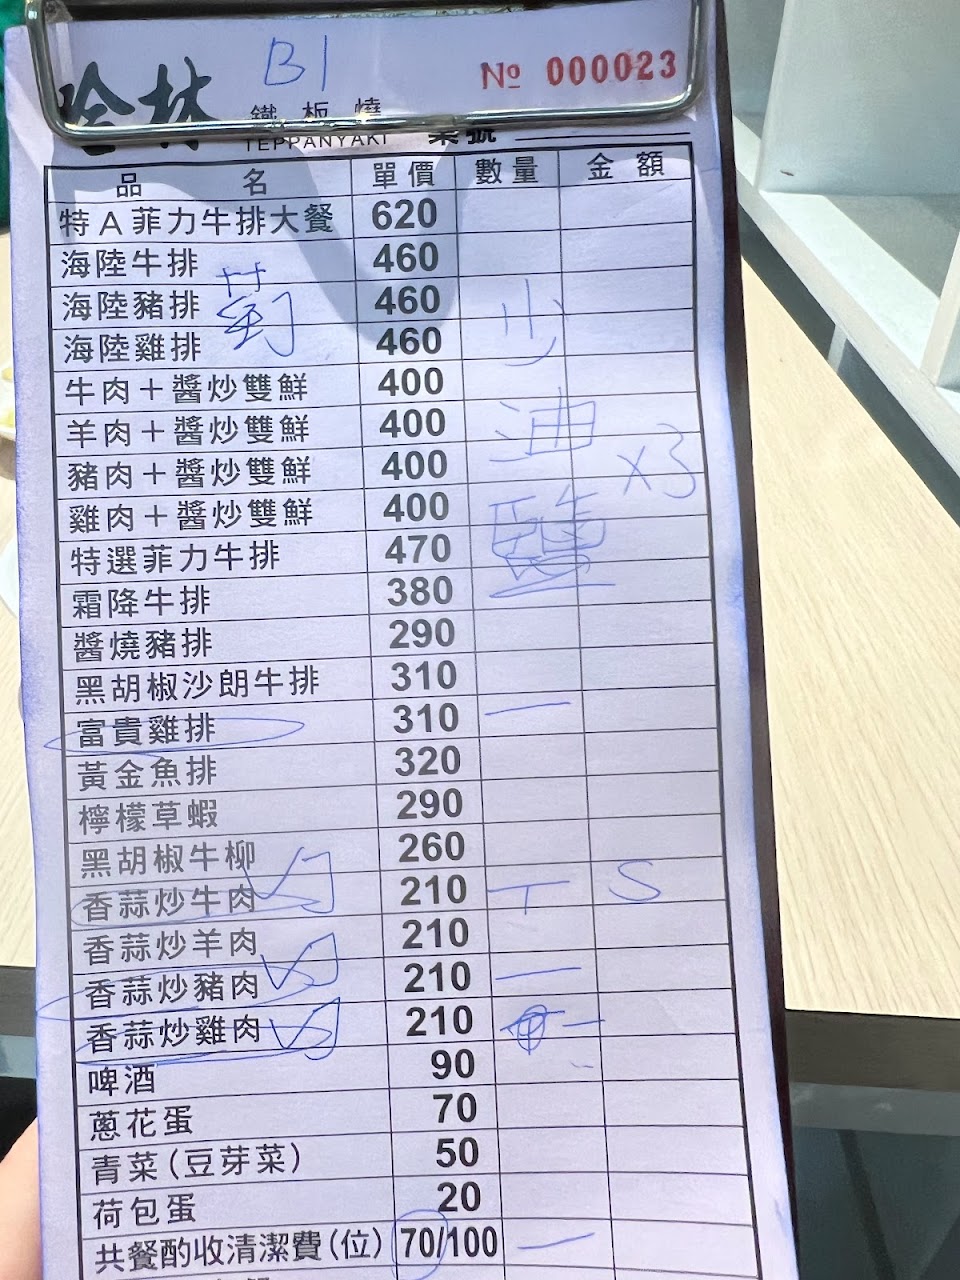 B1
№ 000023
哈林 鐵板燒
TEPPANYAKI 桌號
品名 單價 數量 金額
特A菲力牛排大餐 620
海陸牛排 460
海陸豬排 460
海陸雞排 460
牛肉+醬炒雙鮮 400
羊肉+醬炒雙鮮 400
豬肉+醬炒雙鮮 400
雞肉+醬炒雙鮮 400
少
油
x3
特選菲力牛排 470
霜降牛排 380
醬燒豬排 290
黑胡椒沙朗牛排 310
富貴雞排 310 一
黃金魚排 320
檸檬草蝦 290
黑胡椒牛柳 260
香蒜炒牛肉 210 T S
香蒜炒羊肉 210
香蒜炒豬肉 210 一
香蒜炒雞肉 210 一
啤酒 90
蔥花蛋 70
青菜(豆芽菜) 50
荷包蛋 20
共餐酌收清潔費(位) 70/100 一